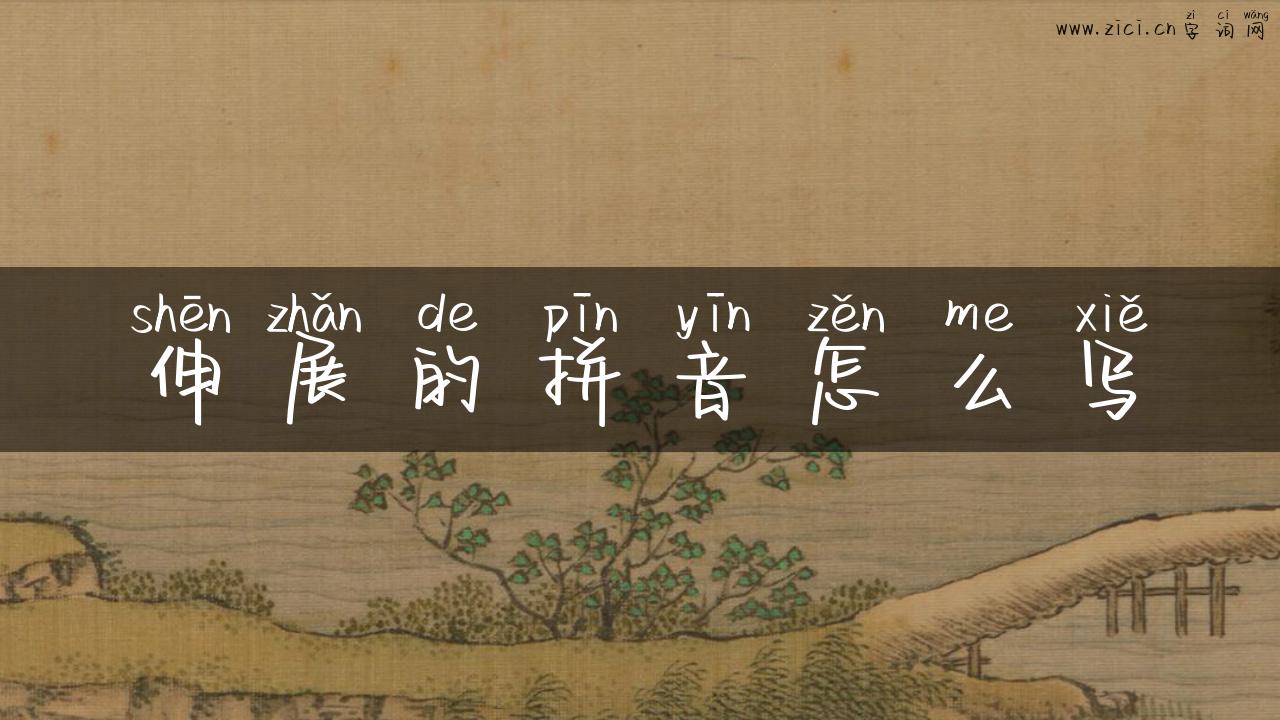 zì cí wǎng
www.zici.cn 字词网
shēn zhǎn de pīn yīn zěn me xiě
伸展的拼音怎么写